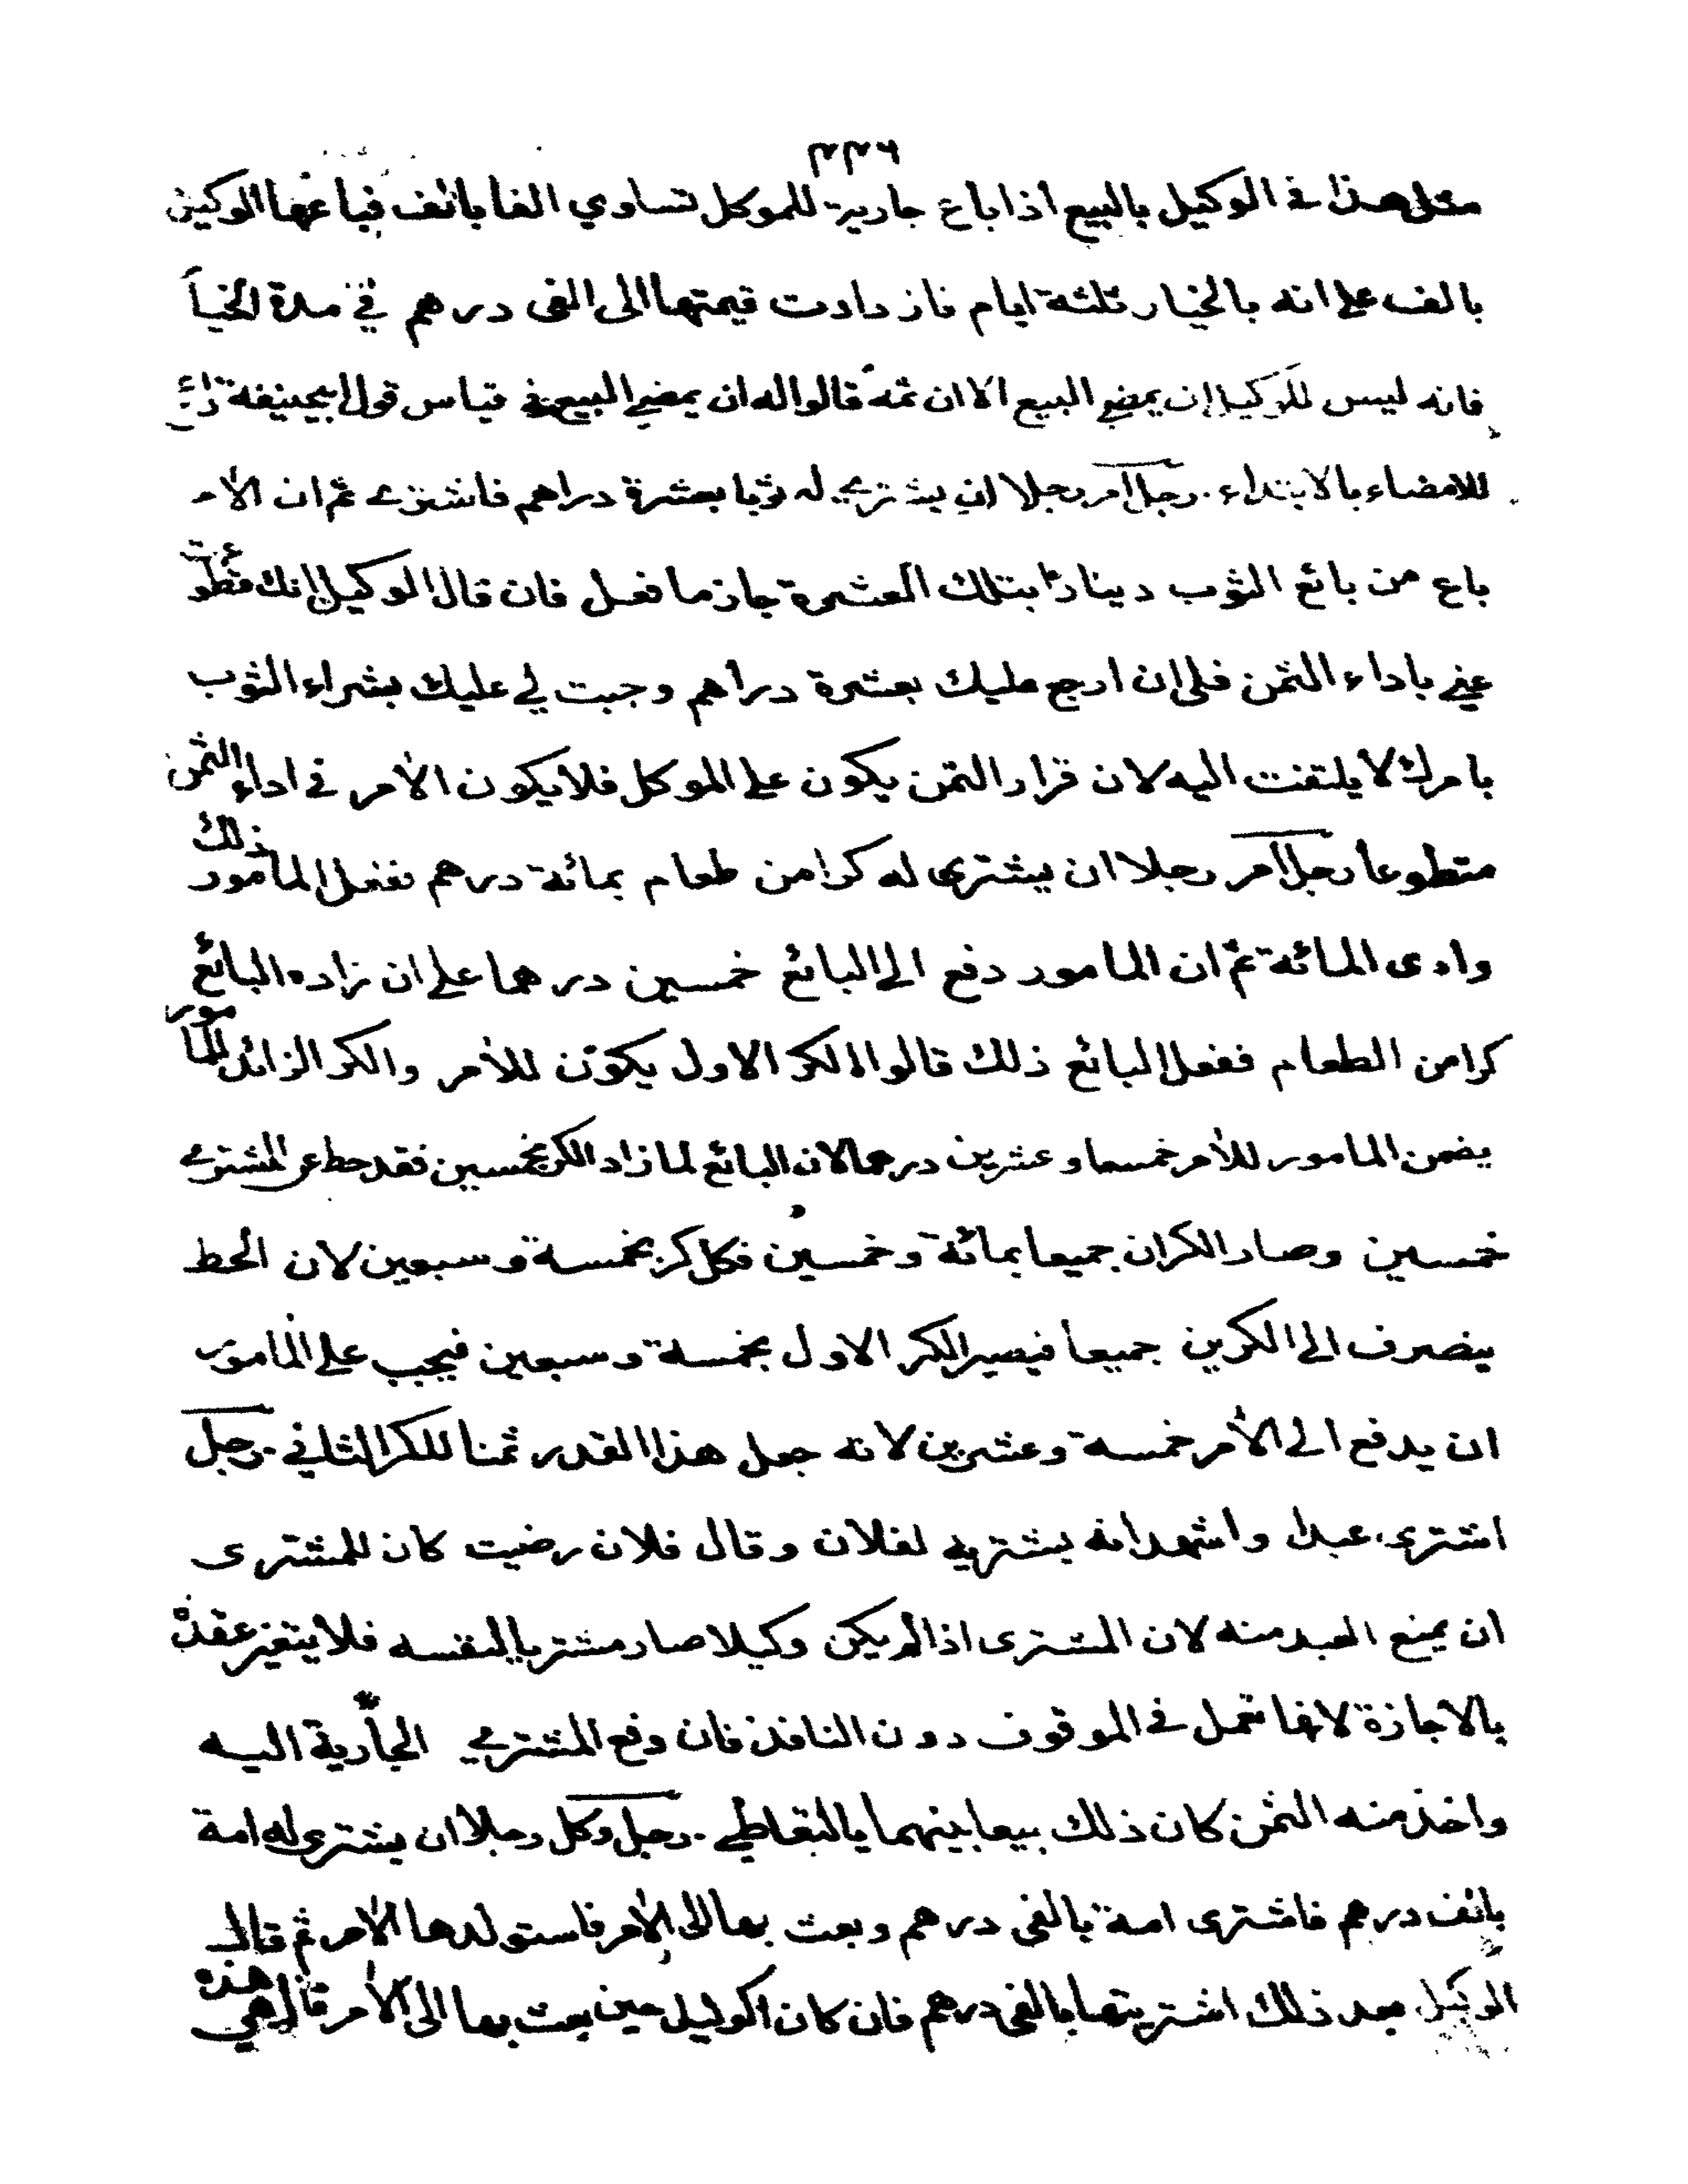 ٢٢٦
مثل هذا في الوكيل بالبيع اذا باع جارية للموكل تساوي الفا بالف فباعها الوكيل
بالف على انه بالخيار ثلثة ايام فازدادت قيمتها الى الفى درهم في مدة الخيا
فانه ليس للوكيل ان يمضي البيع الا ان ثمه قالوا له ان يمضي البيع في قياس قول ابيحنيفة
للامضاء بالابتداء . رجل امر رجلا ان يشتري له ثوبا بعشرة دراهم فاشترى ثم ان الامر
باع من بائع الثوب دينارا بتلك العشرة جاز ما فعل فان قال الوكيل انك تطوعت
عني باداء الثمن فلى ان ارجع عليك بعشرة دراهم وجبت لي عليك بشراء الثوب
بامرك لا يلتفت اليه لان قرار الثمن يكون على الموكل فلا يكون الآمر في اداء الثمن
متطوعا رجل امر رجلا ان يشترى له كرا من طعام بمائة درهم ففعل المأمور ذلك
وادى المائة ثم ان المامور دفع الى البائع خمسين درهما على ان زاده البائع
كرا من الطعام ففعل البائع ذلك قالوا الكر الاول يكون للآمر والكر الزائد للمامور
يضمن المامور للآمر خمسا وعشرين درهما لان البائع لما زاد الكر بخمسين فقد حط عن المشتري
خمسين وصار الكران جميعا بمائة وخمسين فكل كر بخمسة وسبعين لان الحط
ينصرف الى الكرين جميعا فيصير الكر الاول بخمسة وسبعين فيجب على المامور
ان يدفع الى الآمر خمسة وعشرين لانه جعل هذا القدر ثمنا للكر الثاني . رجل
اشترى عبدا واشهد انه يشتريه لفلان وقال فلان رضيت كان للمشترى
ان يمنع العبد منه لان المشترى اذا لم يكن وكيلا صار مشتريا لنفسه فلا يتغير عقده
بالاجازة لانها تعمل في الموقوف دون النافذ فان دفع المشتري الجارية اليه
واخذ منه الثمن كان ذلك بيعا بينهما بالتعاطي . رجل وكل رجلا ان يشترى له امة
بالف درهم فاشترى امة بالفى درهم وبعث بها الى الآمر فاستولدها الآمر ثم قال
الوكيل بعد ذلك اشتريتها بالفى درهم فان كان الوكيل حين بعث بها الى الآمر قال هي هذه